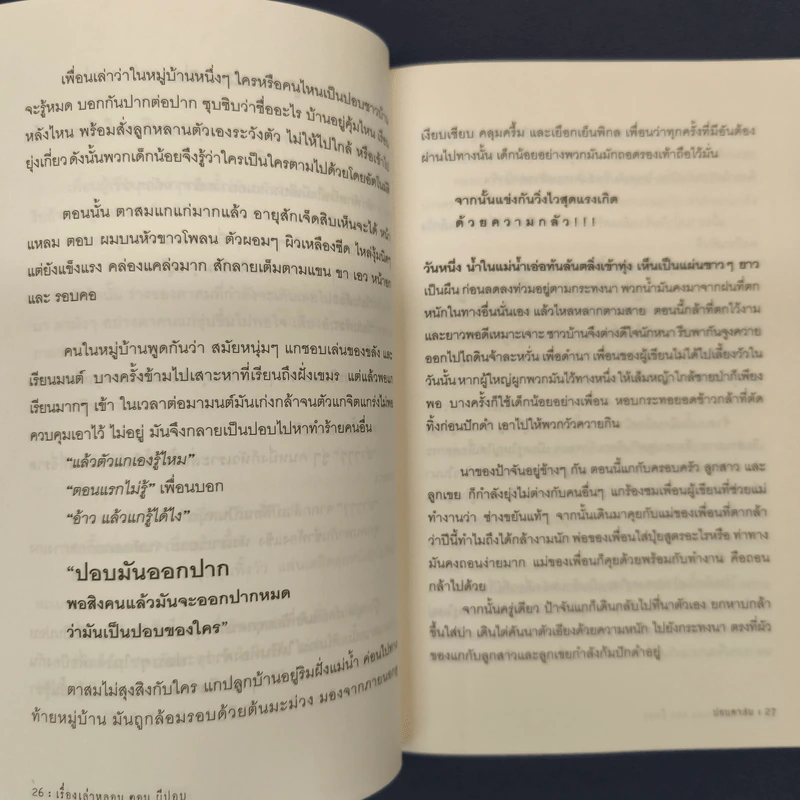 เพื่อนเล่าว่าในหมู่บ้านหนึ่งๆ ใครหรือคนไหนเป็นปอบชาวบ้าน
จะรู้หมด บอกกันปากต่อปาก ซุบซิบว่าชื่ออะไร บ้านอยู่คุ้มไหน
หลังไหน พร้อมสั่งลูกหลานตัวเองระวังตัว ไม่ให้ไปใกล้ หรือเข้าไป
ยุ่งเกี่ยว ดังนั้นพวกเด็กน้อยจึงรู้ว่าใครเป็นใครตามไปด้วยโดยอัตโนมัติ
ตอนนั้น ตาสมแกแก่มากแล้ว อายุสักเจ็ดสิบเห็นจะได้ หน้า
แหลม ตอบ ผมบนหัวขาวโพลน ตัวผอมๆ ผิวเหลืองซีด ไหล่งุ้มนิดๆ
แต่ยังแข็งแรง คล่องแคล่วมาก สักลายเต็มตามแขน ขา เอว หน้าอก
และ รอบคอ
คนในหมู่บ้านพูดกันว่า สมัยหนุ่มๆ แกชอบเล่นของขลัง และ
เรียนมนต์ บางครั้งข้ามไปเสาะหาที่เรียนถึงฝั่งเขมร แต่แล้วพอแก
เรียนมากๆ เข้า ในเวลาต่อมามนต์มันเก่งกล้าจนตัวแกจิตแกร่งไม่พอ
ควบคุมเอาไว้ ไม่อยู่ มันจึงกลายเป็นปอบไปหาทำร้ายคนอื่น
“แล้วตัวแกเองรู้ไหม”
“ตอนแรกไม่รู้” เพื่อนบอก
“อ้าว แล้วแกรู้ได้ไง”
“ปอบมันออกปาก
พอสิงคนแล้วมันจะออกปากหมด
ว่ามันเป็นปอบของใคร”
ตาสมไม่สุงสิงกับใคร แกปลูกบ้านอยู่ริมฝั่งแม่น้ำ ค่อนไปทาง
ท้ายหมู่บ้าน มันถูกล้อมรอบด้วยต้นมะม่วง มองจากภายนอกดู
26 : เรื่องเล่าหลอน ตอน ผีปอบ
เงียบเชียบ คลุมครึ้ม และเยือกเย็นพิกล เพื่อนว่าทุกครั้งที่มีอันต้อง
ผ่านไปทางนั้น เด็กน้อยอย่างพวกมันมักถอดรองเท้าถือไว้มั่น
จากนั้นแข่งกันวิ่งไวสุดแรงเกิด
ด้วยความกลัว!!!
วันหนึ่ง น้ำในแม่น้ำเอ่อท้นล้นตลิ่งเข้าทุ่ง เห็นเป็นแผ่นขาวๆ ยาว
เป็นผืน ก่อนลดลงท่วมอยู่ตามกระทงนา พวกน้ำมันคงมาจากฝนที่ตก
หนักในทางอื่นนั่นเอง แล้วไหลหลากตามสาย ตอนนี้กล้าที่ตกไว้งาม
และยาวพอดีเหมาะเจาะ ชาวบ้านจึงต่างดีใจนักหนา รีบพากันจูงควาย
ออกไปไถดินจ้าละหวั่น เพื่อดำนา เพื่อนของผู้เขียนไม่ได้ไปเลี้ยงวัวใน
วันนั้น หากผู้ใหญ่ผูกพวกมันไว้ทางหนึ่ง ให้เล็มหญ้าใกล้ชายป่าก็เพียง
พอ บางครั้งก็ใช้เด็กน้อยอย่างเพื่อน หอบกระทอยยอดข้าวกล้าที่ตัด
ทิ้งก่อนปักดำ เอาไปให้พวกวัวควายกิน
นาของป้าจันอยู่ข้างๆ กัน ตอนนี้แกกับครอบครัว ลูกสาว และ
ลูกเขย ก็กำลังยุ่งไม่ต่างกับคนอื่นๆ แกร้องชมเพื่อนผู้เขียนที่ช่วยแม่
ทำงานว่า ช่างขยันแท้ๆ จากนั้นเดินมาคุยกับแม่ของเพื่อนที่ตากล้า
ว่าปีนี้ทำไมถึงได้กล้างามนัก พ่อของเพื่อนใส่ปุ๋ยสูตรอะไรหรือ ท่าทาง
มันคงถอนง่ายมาก แม่ของเพื่อนก็คุยด้วยพร้อมกับทำงาน คือถอน
กล้าไปด้วย
จากนั้นครู่เดียว ป้าจันแกก็เดินกลับไปที่นาตัวเอง ยกหาบกล้า
ขึ้นใส่บ่า เดินไต่คันนาตัวเอียงด้วยความหนัก ไปยังกระทงนา ตรงที่ผัว
ของแกกับลูกสาวและลูกเขยกำลังก้มปักดำอยู่
ปอบตาสม : 27